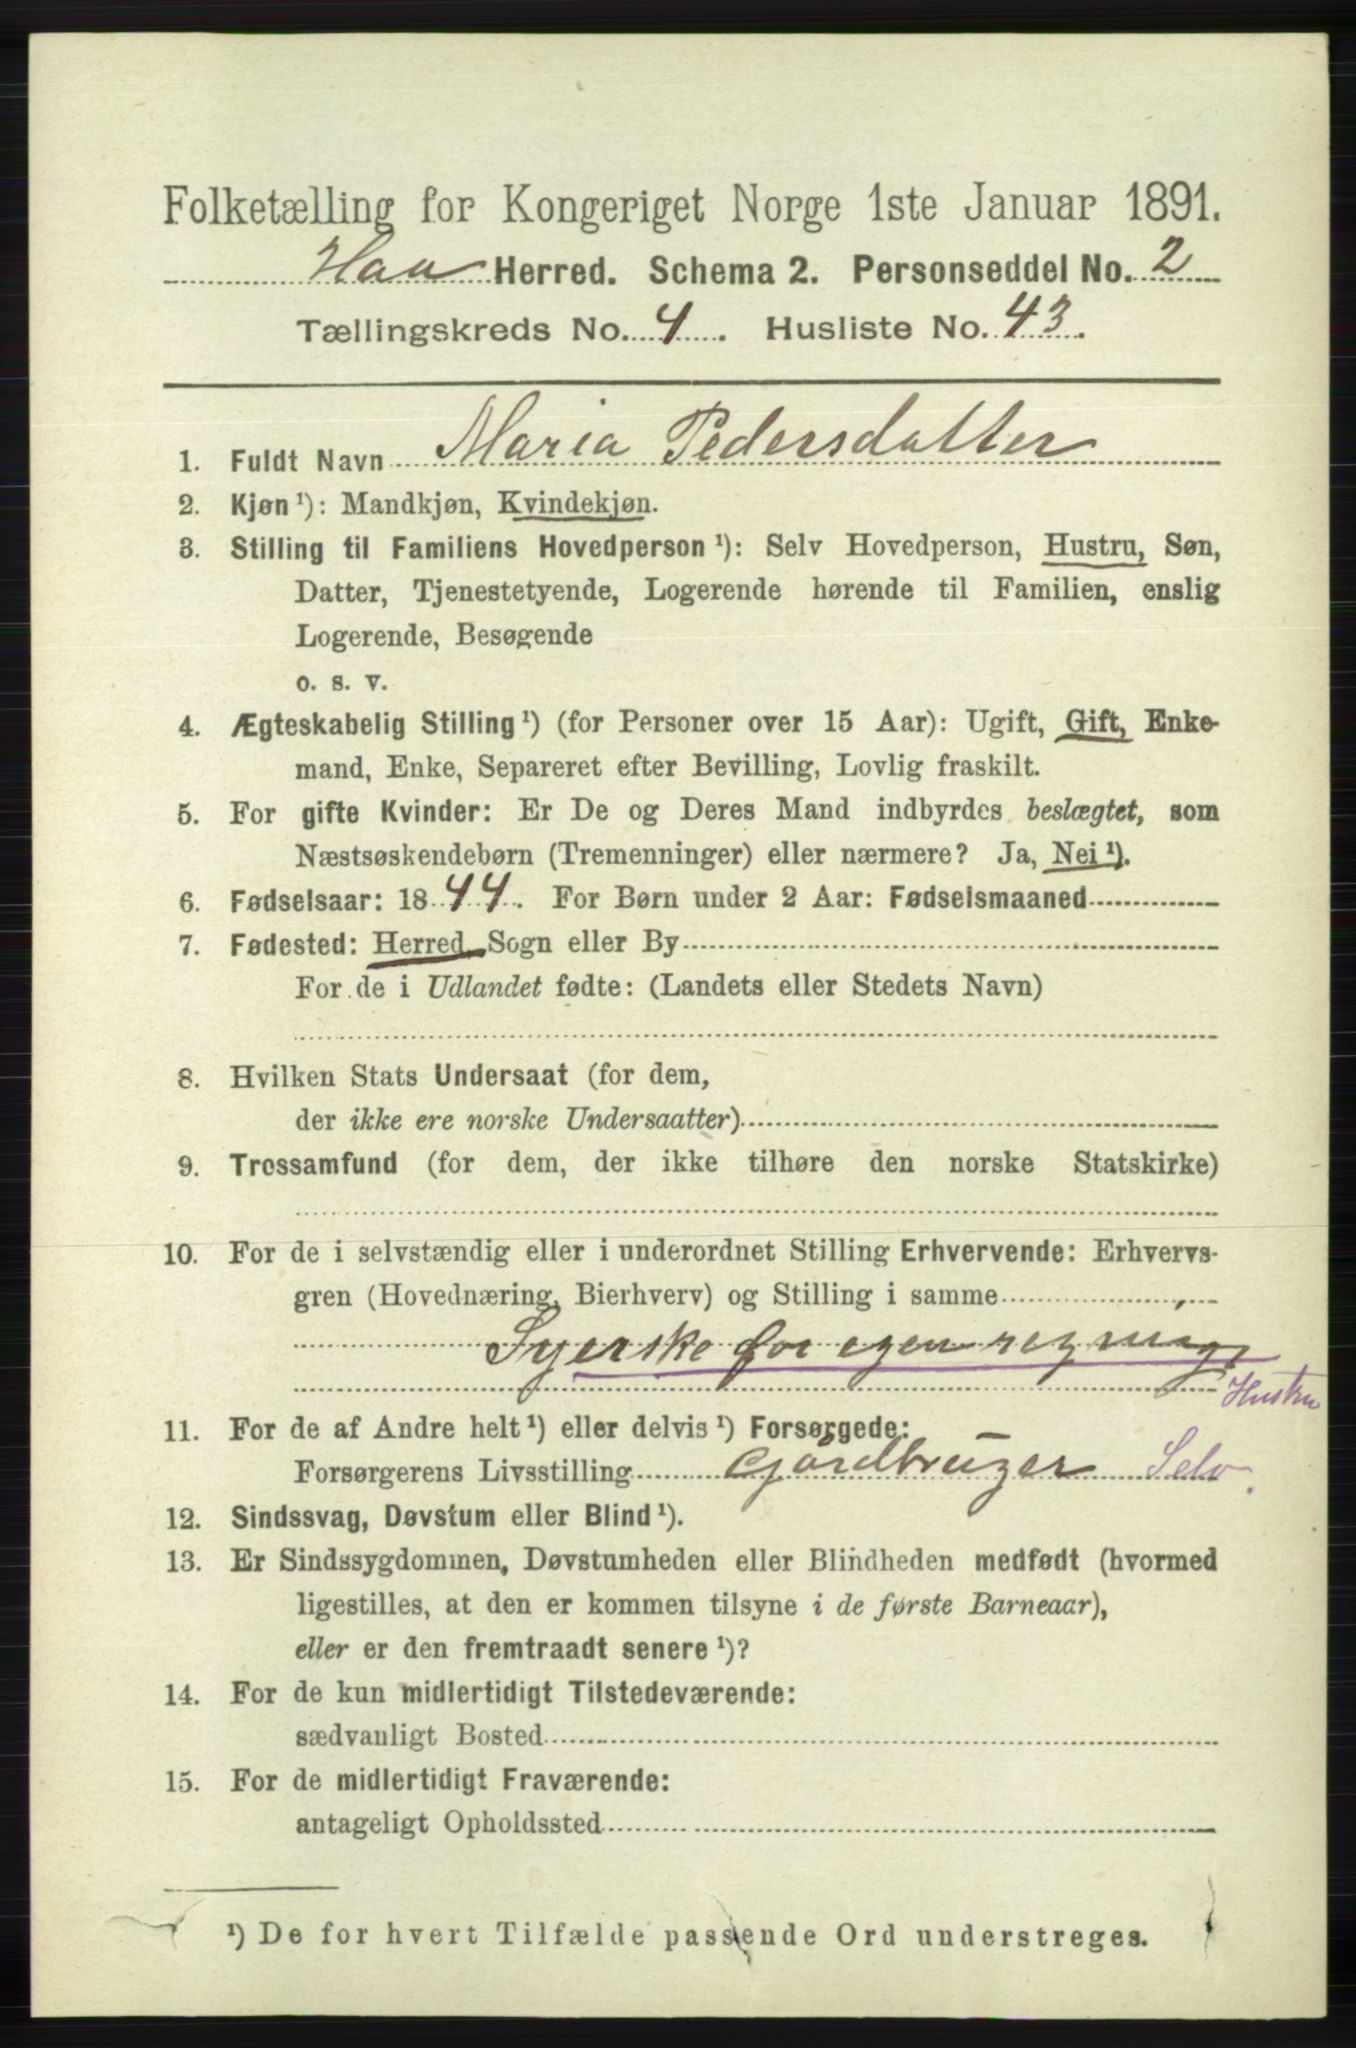 Folketælling for Kongeriget Norge 1ste Januar 1891.
Haa Herred. Schema 2. Personseddel No. 2
Tællingskreds No. 4. Husliste No. 43.
1. Fuldt Navn Maria Pedersdatter
2. Kjøn ¹): Mandkjøn, Kvindekjøn.
3. Stilling til Familiens Hovedperson ¹): Selv Hovedperson, Hustru, Søn,
Datter, Tjenestetyende, Logerende hørende til Familien, enslig
Logerende, Besøgende
o. s. v.
4. Ægteskabelig Stilling ¹) (for Personer over 15 Aar): Ugift, Gift, Enke-
mand, Enke, Separeret efter Bevilling, Lovlig fraskilt.
5. For gifte Kvinder: Er De og Deres Mand indbyrdes beslægtet, som
Næstsøskendebørn (Tremenninger) eller nærmere? Ja, Nei ¹).
6. Fødselsaar: 1844. For Børn under 2 Aar: Fødselsmaaned
7. Fødested: Herred, Sogn eller By
For de i Udlandet fødte: (Landets eller Stedets Navn)
8. Hvilken Stats Undersaat (for dem,
der ikke ere norske Undersaatter)
9. Trossamfund (for dem, der ikke tilhøre den norske Statskirke)
10. For de i selvstændig eller i underordnet Stilling Erhvervende: Erhvervs-
gren (Hovednæring, Bierhverv) og Stilling i samme
Syerske for egen regning
Hustru
11. For de af Andre helt ¹) eller delvis ¹) Forsørgede:
Forsørgerens Livsstilling Gårdbruger Selv.
12. Sindssvag, Døvstum eller Blind ¹).
13. Er Sindssygdommen, Døvstumheden eller Blindheden medfødt (hvormed
ligestilles, at den er kommen tilsyne i de første Barneaar),
eller er den fremtraadt senere ¹)?
14. For de kun midlertidigt Tilstedeværende:
sædvanligt Bosted
15. For de midlertidigt Fraværende:
antageligt Opholdssted
¹) De for hvert Tilfælde passende Ord understreges.